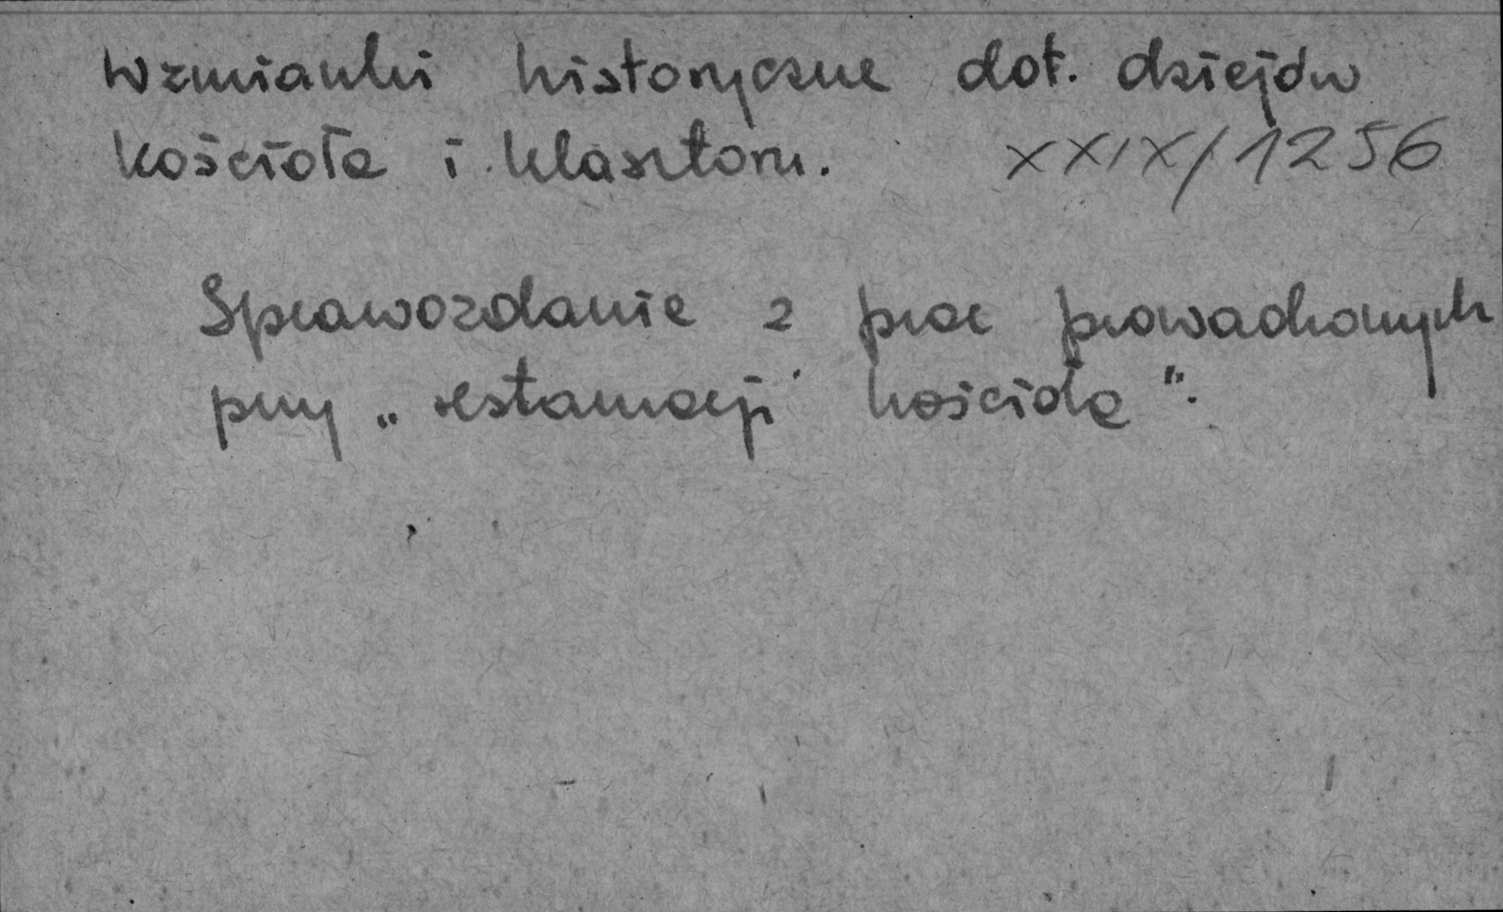 Wzmianki historyczne dot. dziejów
kościoła i klasztoru. XXIX/1256
Sprawozdanie z prac prowadzonych
przy „restauracji kościoła".